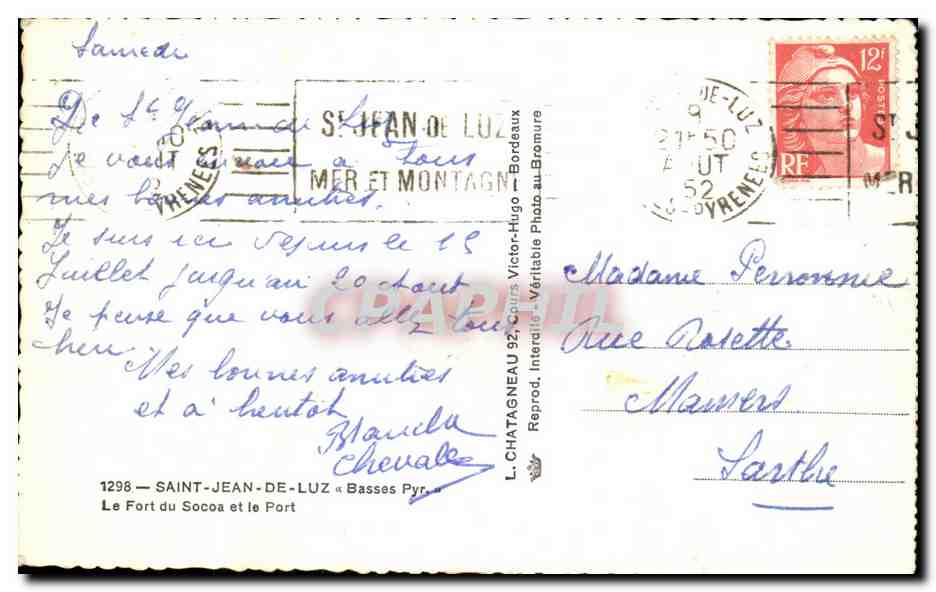 Samedi
De St Jean de Luz
je vous envoie à tous
mes bonnes amitiés.
Je suis ici depuis le 15
Juillet jusqu'au 20 Aout
Je pense que vous allez tous
bien.
Mes bonnes amitiés
et à bientôt
Blanche
Chevale
1298 — SAINT-JEAN-DE-LUZ « Basses Pyr. »
Le Fort du Socoa et le Port
ST JEAN DE LUZ
MER ET MONTAGN
PYRENEES
L. CHATAGNEAU 92, Cours Victor-Hugo — Bordeaux
Reprod. Interdite - Véritable Photo au Bromure
CPAPHIL
DE-LUZ
9
21H50
AOUT
52
PYRENEES
12F
POSTES
RF
ST J
MER
Madame Peronnie
Rue Rosette
Mamers
Sarthe